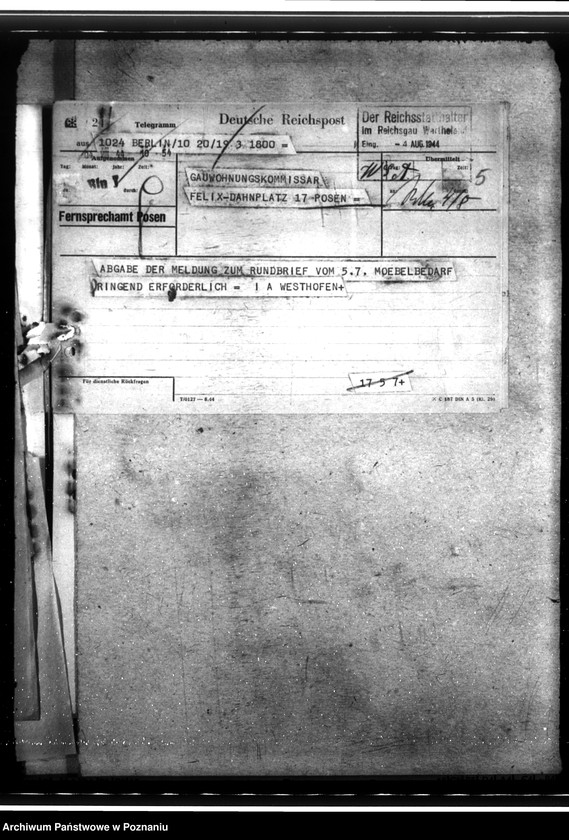 Telegramm
Deutsche Reichspost
Der Reichsstatthalter
im Reichsgau Wartheland
Eing. - 4 AUG. 1944
aus 1024 BERLIN/10 20/19 3 1800 =
Aufgenommen
Übermittelt
Tag: Monat: Jahr: Zeit:
durch:
GAUWOHNUNGSKOMMISSAR
FELIX-DAHNPLATZ 17 POSEN =
Fernsprechamt Posen
ABGABE DER MELDUNG ZUM RUNDBRIEF VOM 5.7, MOEBELBEDARF
DRINGEND ERFORDERLICH = I A WESTHOFEN+
17 5 7+
Für dienstliche Rückfragen
Archiwum Państwowe w Poznaniu